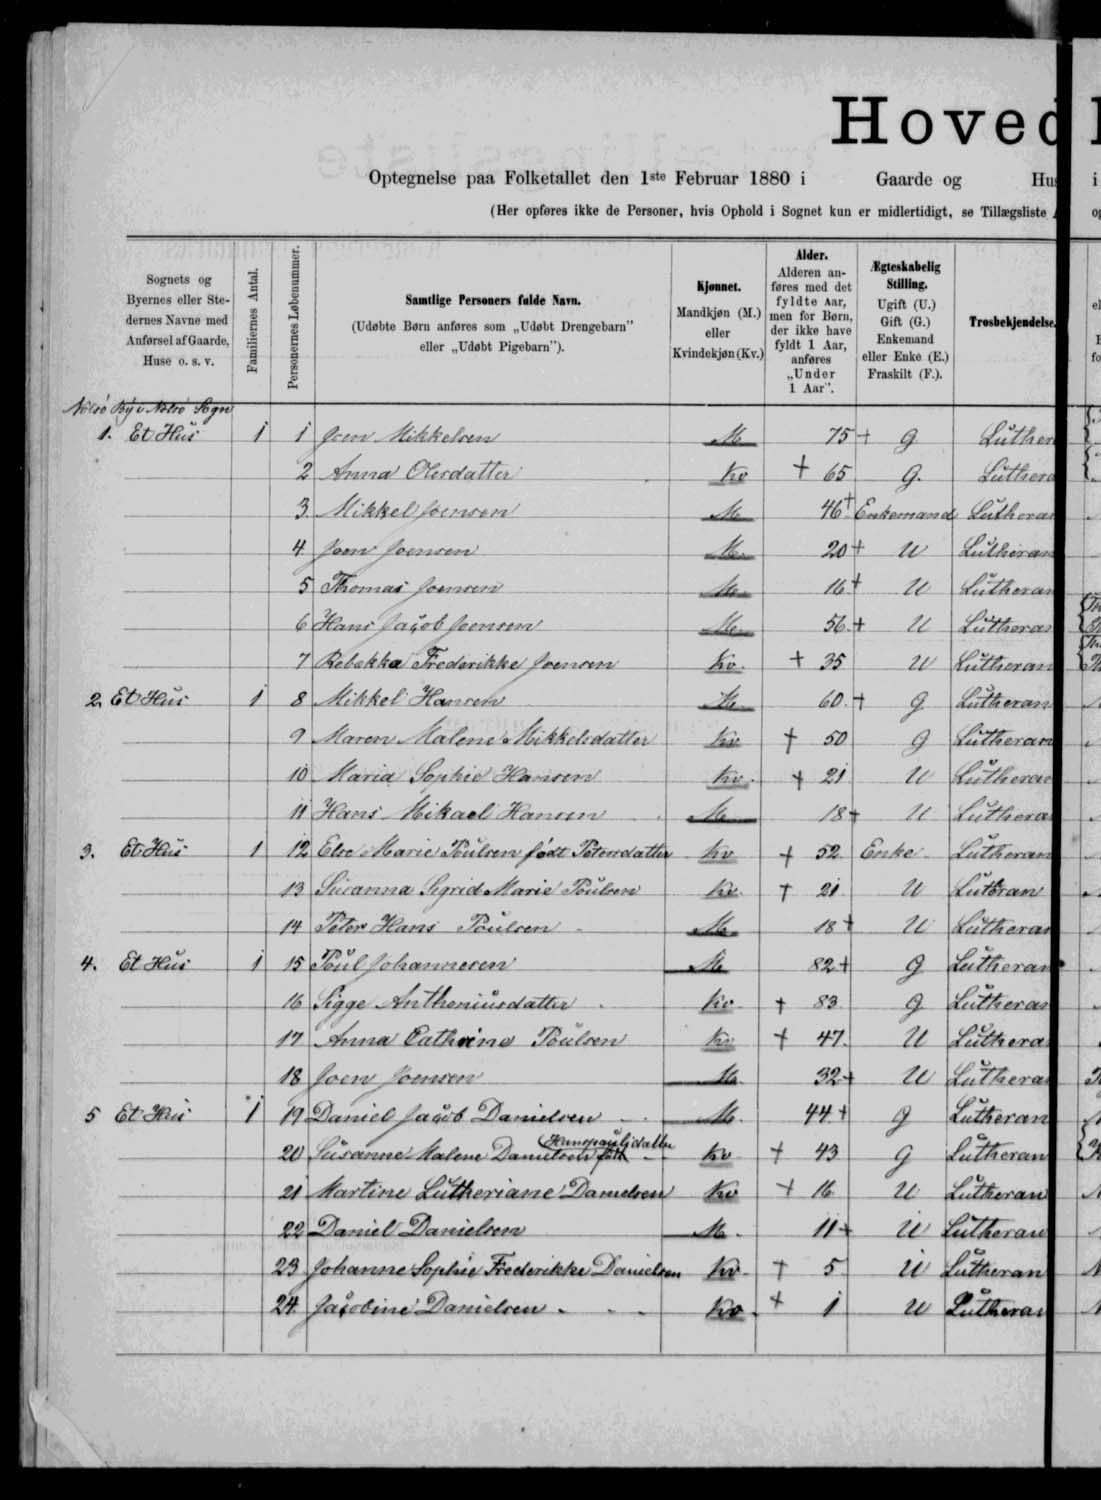 Hoved
Optegnelse paa Folketallet den 1ste Februar 1880 i Gaarde og Hus
(Her opføres ikke de Personer, hvis Ophold i Sognet kun er midlertidigt, se Tillægsliste
Sognets og Byernes eller Stedernes Navne med Anførsel af Gaarde, Huse o. s. v.
Familiernes Antal.
Personernes Løbenummer.
Samtlige Personers fulde Navn.
(Udøbte Børn anføres som „Udøbt Drengebarn" eller „Udøbt Pigebarn").
Kjønnet.
Mandkjøn (M.) eller Kvindekjøn (Kv.)
Alder.
Alderen anføres med det fyldte Aar, men for Børn, der ikke have fyldt 1 Aar, anføres „Under 1 Aar".
Ægteskabelig Stilling.
Ugift (U.) Gift (G.) Enkemand eller Enke (E.) Fraskilt (F.).
Trosbekjendelse.
Nolsö By i Nolsö Sogn
1. Et Hus 1 1 Joen Mikkelsen M 75 + G Luther
2 Anna Olesdatter Kv + 65 G. Luthera
3. Mikkel Joensen M 46 + Enkemand Lutheran
4 Joen Joensen M. 20 + U Lutheran
5 Thomas Joensen M. 16 + U Lutheran
6 Hans Jacob Joensen M. 56. + U Lutheran
7 Rebekka Frederikke Joensen Kv. + 35 U Lutheran
2. Et Hus 1 8 Mikkel Hansen M. 60. + G Lutheran
9 Maren Malene Mikkelsdatter Kv + 50 G Lutheran
10 Maria Sophie Hansen Kv. + 21 U Lutheran
11 Hans Mikael Hansen M. 18 + U Luthera
3. Et Hus 1 12 Else Marie Poulsen født Petersdatter Kv + 52 Enke Lutheran
13 Susanna Sigrid Marie Poulsen Kv. + 21 U Luthran
14 Peter Hans Poulsen M. 18 + U Lutheran
4. Et Hus 1 15 Poul Johannesen M 82 + G Lutheran
16 Sigge Antheniusdatter Kv. + 83 G Lutheran
17 Anna Cathrine Poulsen Kv + 47. U Luthera
18 Joen Joensen M. 32 + U Lutheran
5 Et Hus 1 19 Daniel Jacob Danielsen M. 44 + G Lutheran
Hanspaulidatter
20 Susanne Malene Danielsen født Kv + 43 G Lutheran
21 Martine Lutheriane Danielsen Kv + 16 U Lutheran
22 Daniel Danielsen M. 11 + U Lutheran
23 Johanne Sophie Frederikke Danielsen Kv. + 5 U Lutheran
24. Jacobine Danielsen Kv. + 1 U Lutheran